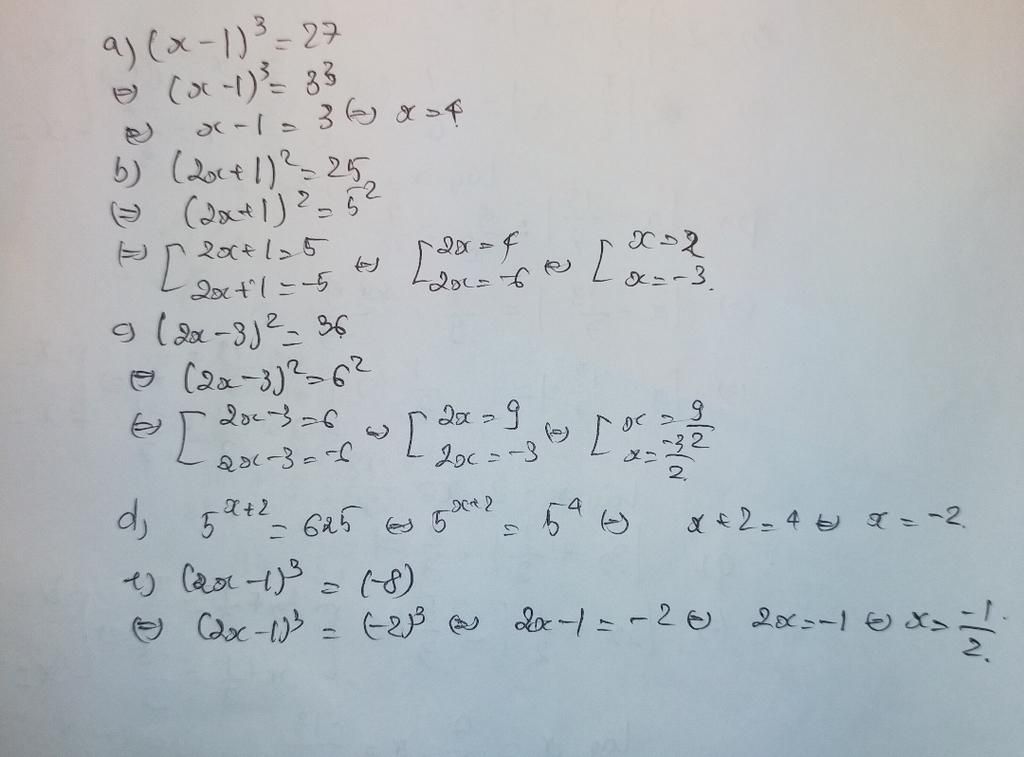 a) (x-1)³ = 27
⇔ (x-1)³ = 3³
⇔ x-1 = 3 ⇔ x = 4
b) (2x+1)² = 25
⇔ (2x+1)² = 5²
⇔ [ 2x+1 = 5 ⇔ [ 2x = 4 ⇔ [ x = 2
2x+1 = -5 2x = -6 x = -3.
c) (2x-3)² = 36
⇔ (2x-3)² = 6²
⇔ [ 2x-3 = 6 ⇔ [ 2x = 9 ⇔ [ x = 9/2
2x-3 = -6 2x = -3 x = -3/2.
d) 5^(x+2) = 625 ⇔ 5^(x+2) = 5⁴ ⇔ x+2 = 4 ⇔ x = -2.
e) (2x-1)³ = (-8)
⇔ (2x-1)³ = (-2)³ ⇔ 2x-1 = -2 ⇔ 2x = -1 ⇔ x = -1/2.